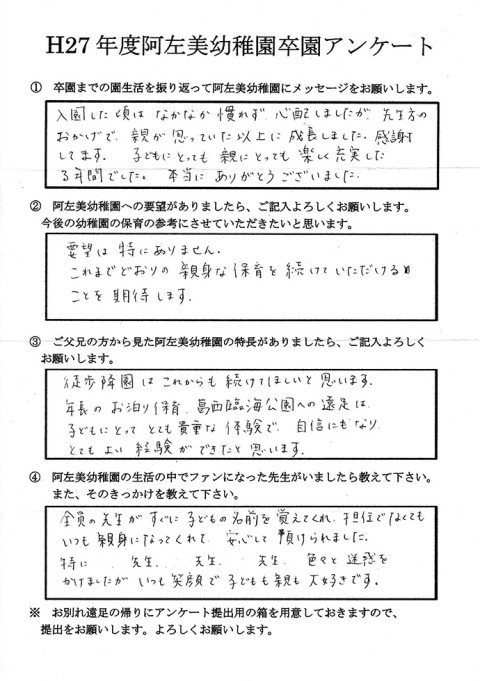 H27 年度阿左美幼稚園卒園アンケート
① 卒園までの園生活を振り返って阿左美幼稚園にメッセージをお願いします。
入園した頃は なかなか 慣れず、心配しましたが、先生方の
おかげで、親が思っていた以上に 成長しました。感謝
してます。 子どもにとっても 親にとっても 楽しく 充実した
3年間でした。 本当に ありがとうございました。
② 阿左美幼稚園への要望がありましたら、ご記入よろしくお願いします。
今後の幼稚園の保育の参考にさせていただきたいと思います。
要望は 特に ありません。
これまでどおりの 親身な 保育を 続けていただける
ことを 期待します。
③ ご父兄の方から見た阿左美幼稚園の特長がありましたら、ご記入よろしく
お願いします。
徒歩降園は これからも 続けてほしいと 思います。
年長の お泊り保育、葛西臨海公園への遠足は、
子どもにとって とても 貴重な 体験で、自信にもなり、
とてもよい 経験ができたと 思います。
④ 阿左美幼稚園の生活の中でファンになった先生がいましたら教えて下さい。
また、そのきっかけを教えて下さい。
全員の先生が すぐに 子どもの 名前を 覚えてくれ、担任でなくても
いつも 親身になってくれて、安心して 預けられました。
特に 先生、 先生、 先生、色々と 迷惑を
かけましたが いつも 笑顔で 子どもも 親も 大好きです。
※ お別れ遠足の帰りにアンケート提出用の箱を用意しておきますので、
提出をお願いします。よろしくお願いします。